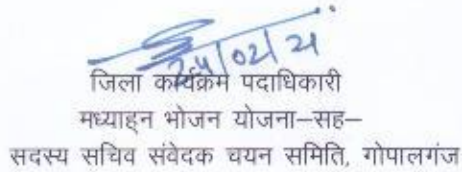 24/02/21
जिला कार्यक्रम पदाधिकारी
मध्याह्न भोजन योजना–सह–
सदस्य सचिव संवेदक चयन समिति, गोपालगंज